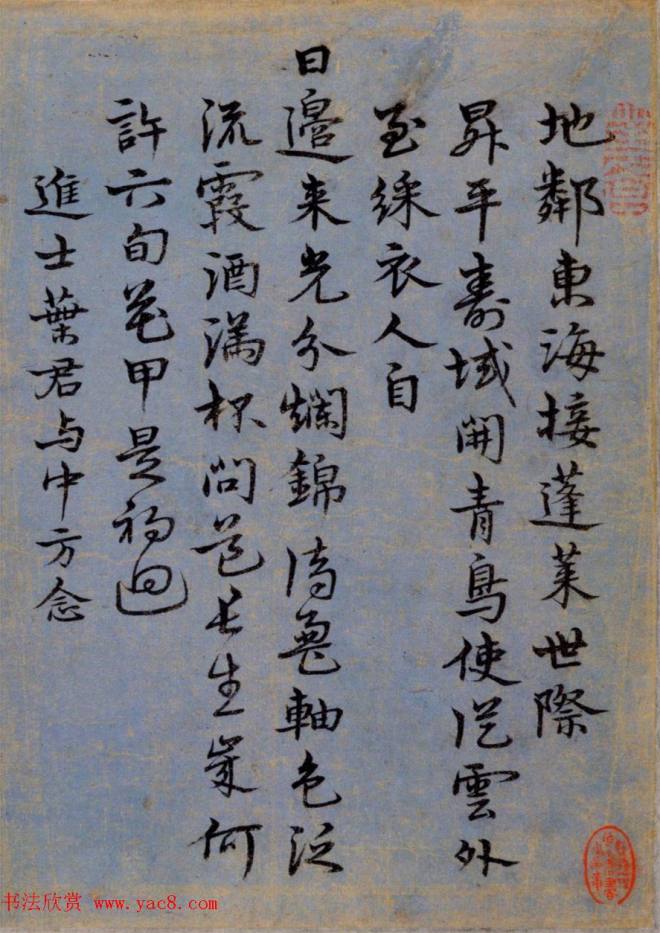 地鄰東海接蓬萊世際
昇平壽域開青鳥使從雲外
至綵衣人自
日邊来光分爛錦清盈軸色泛
流霞酒滿杯問花長生歲何
許六旬花甲是初迴
進士葉君与中方念
书法欣赏 www.yac8.com